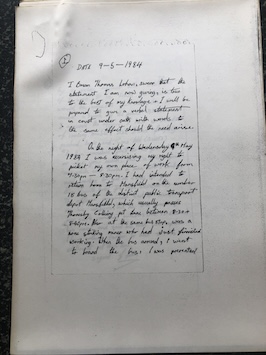 2
DATE 9-5-1984
I Ewan Thomas, swear that the
statement I am now giving, is true
to the best of my knowlege & I will be
prepared to give a verbal statement
in court under oath with words to
the same effect should the need arise.
On the night of Wednesday 9th May
1984 I was exercising my right to
picket my own place of work from
4.30pm - 8.30pm. I had intended to
return home to Mansfield on the number
15 bus of the district public transport
depot Mansfield, which usually passes
Thoresby Colliery pit lane between 8.30 &
8.40pm. Also at the same bus stop, was a
non striking miner who had just finished
working. When the bus arrived, I went
to board the bus. I was prevented